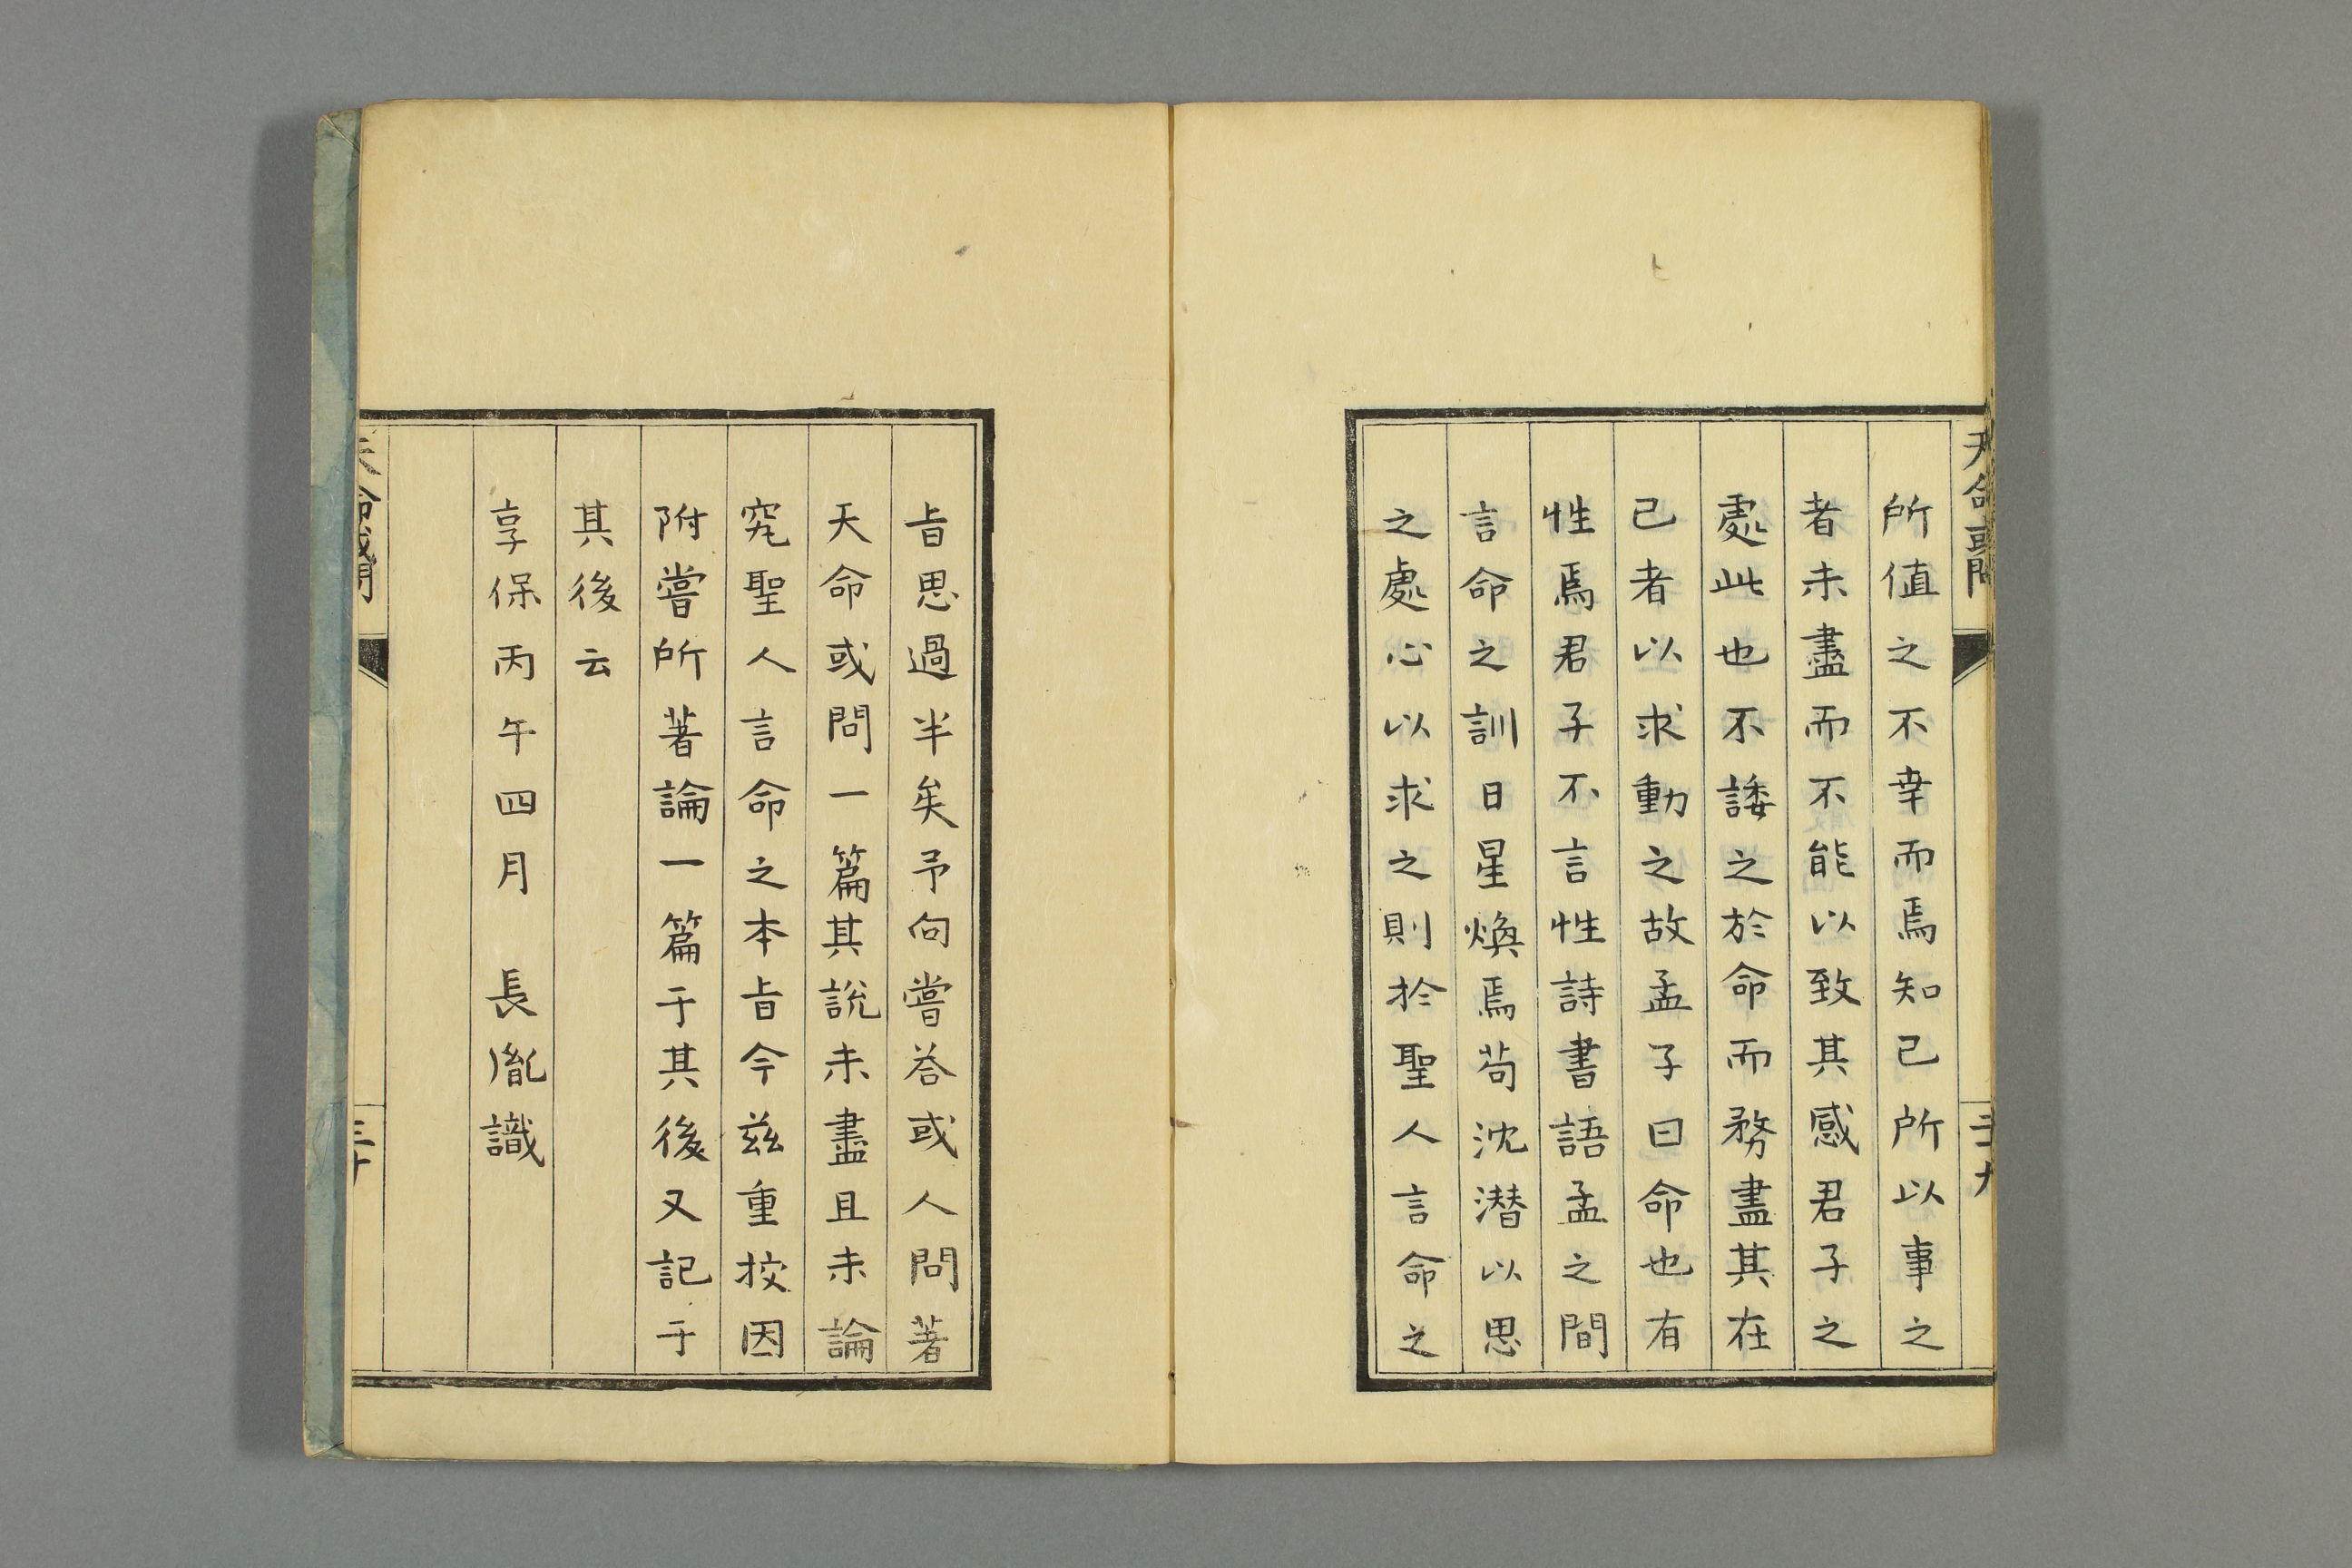 天命或問
所値之不幸而焉知己所以事之
者未盡而不能以致其感君子之
處此也不諉之於命而務盡其在
己者以求動之故孟子曰命也有
性焉君子不言性詩書語孟之間
言命之訓日星煥焉苟沈潛以思
之處心以求之則於聖人言命之
旨思過半矣予向嘗荅或人問著
天命或問一篇其說未盡且未論
究聖人言命之本旨今茲重挍因
附嘗所著論一篇于其後又記于
其後云
享保丙午四月 長胤識
天命或問
三十